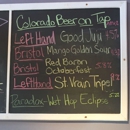 Colorado Beer on Tap
Left Hand Good Juju
Bristol Mango Golden Sour
Bristol Red Baron
Octoberfest
Left Hand St. Vrain Tripel
Paradox - Wet Hop Eclipse